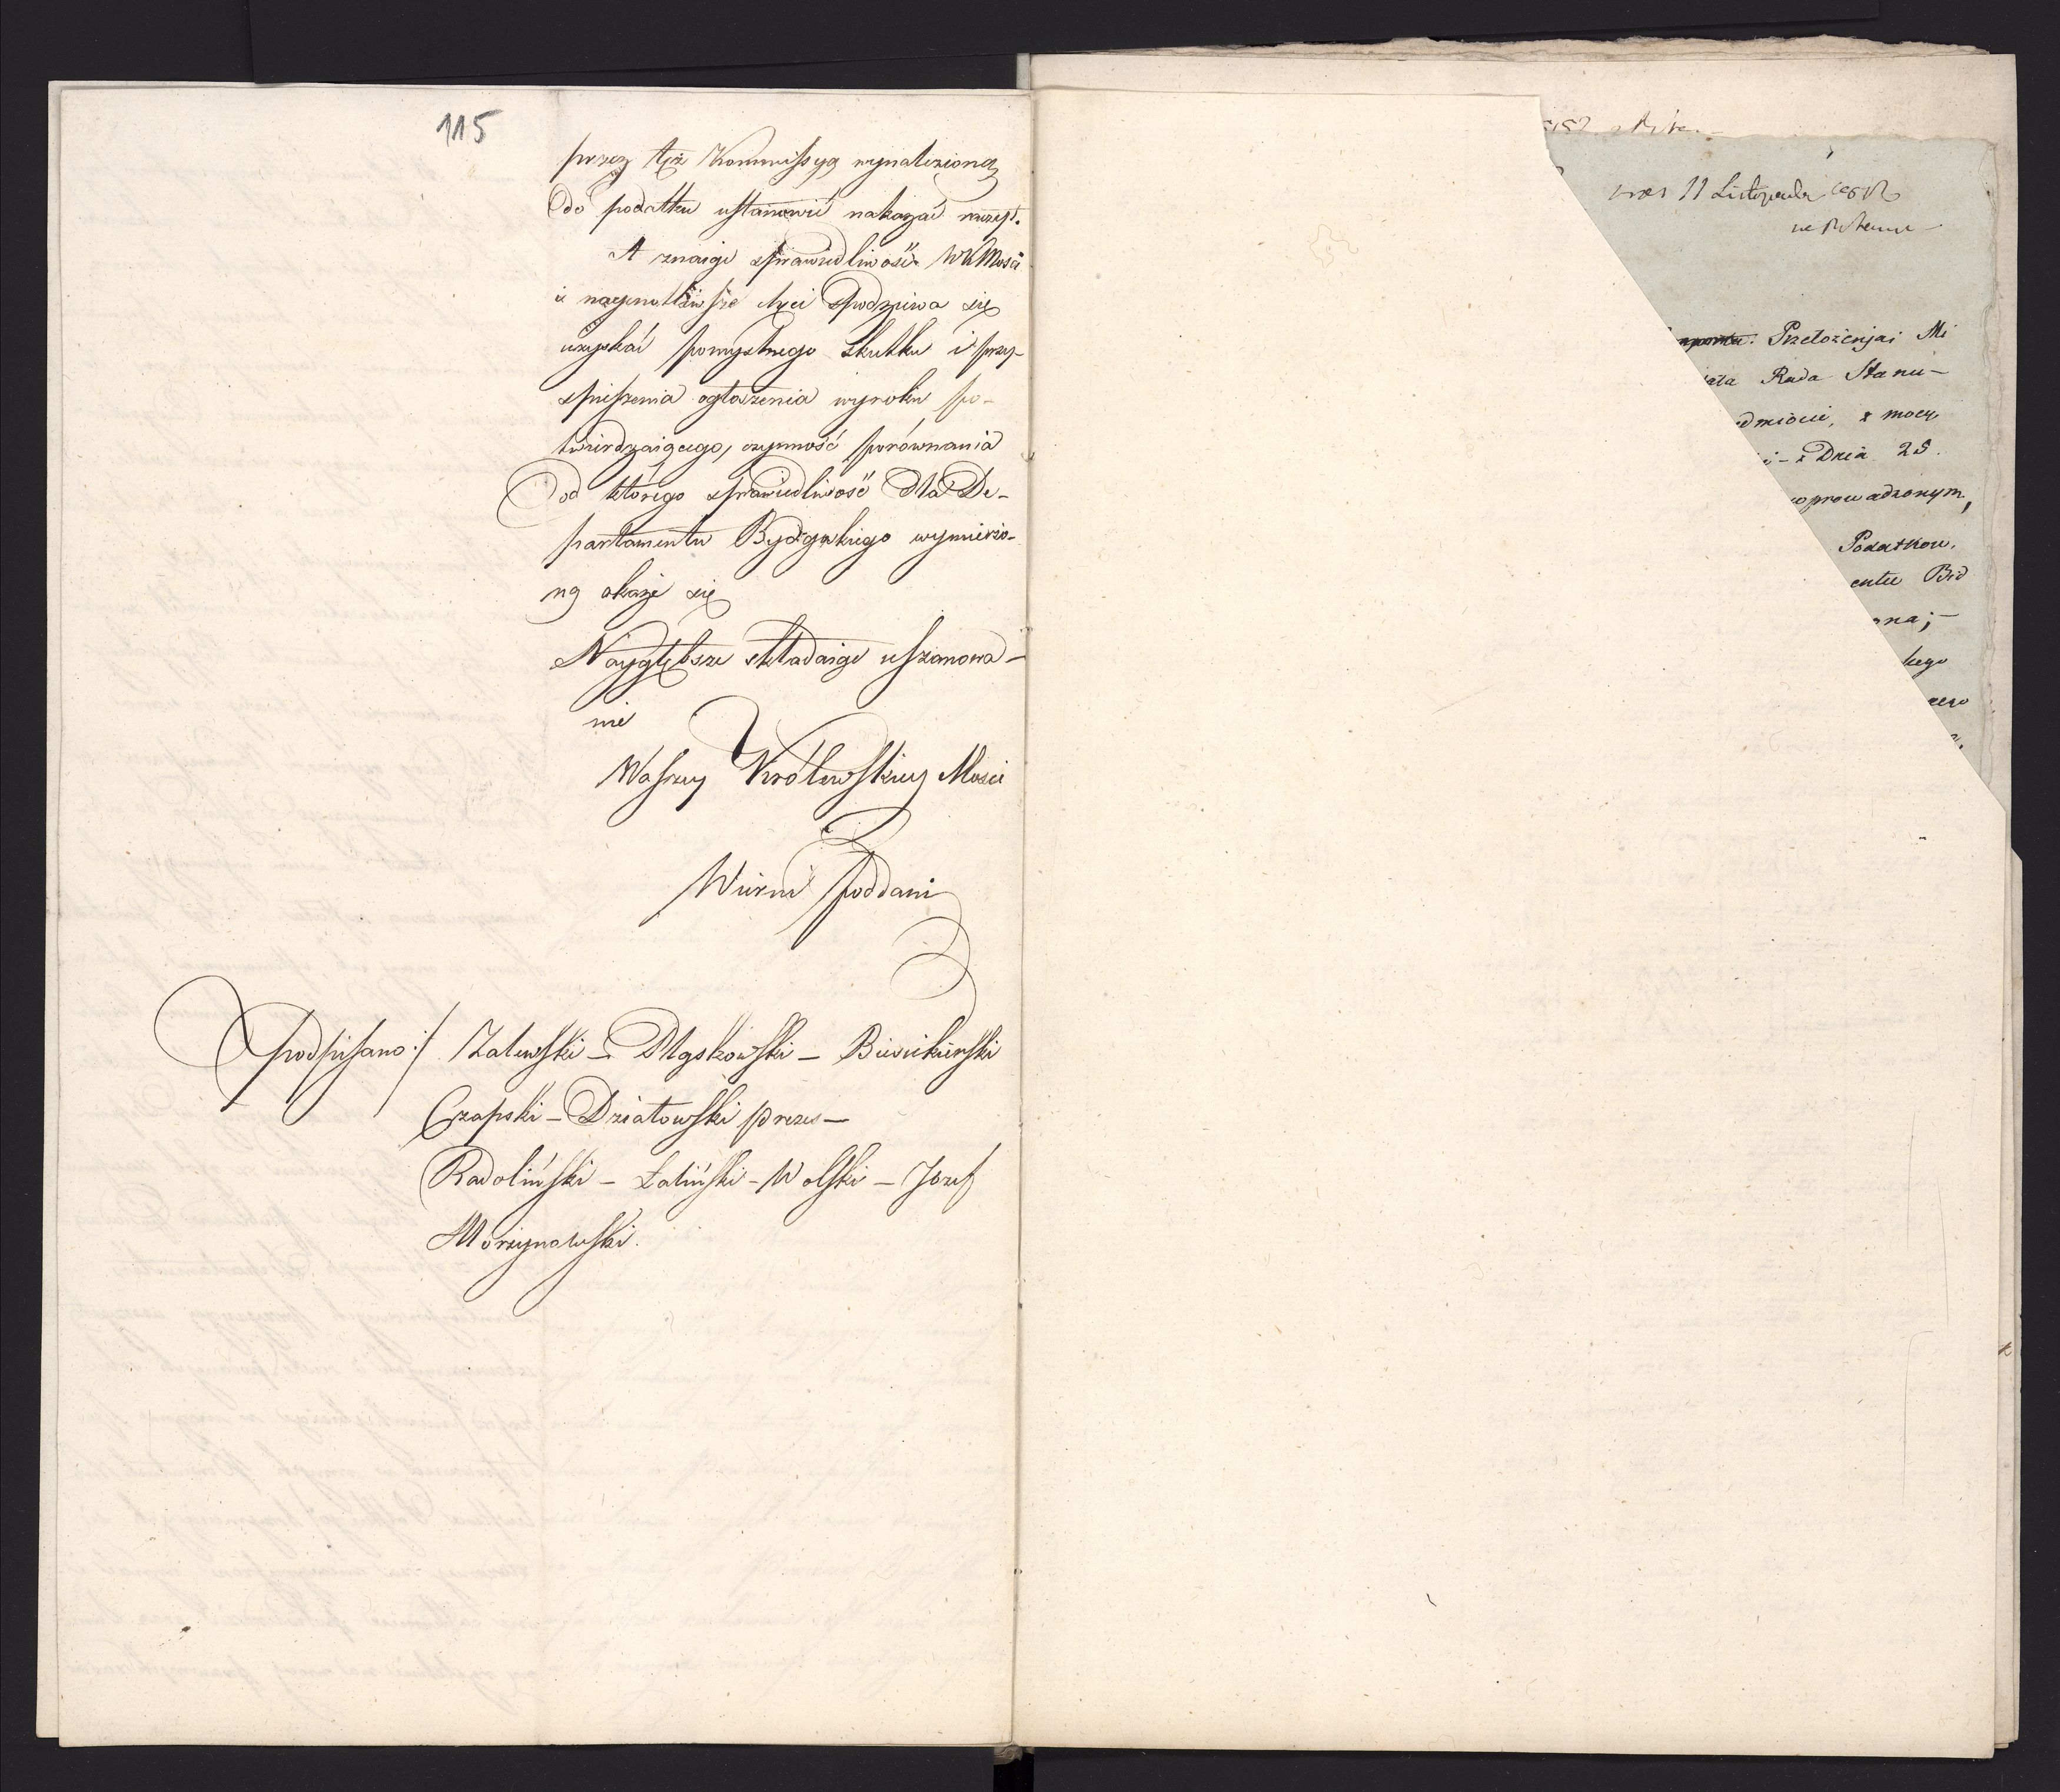 115
przez też Kommissyą wynalezioną
do podatku ustanowić nakazać raczył.
A znaiąc sprawiedliwość WKMości
i nayczulsze chęci spodziewa się
uzyskać pomyślnego skutku i przy-
spieszenia ogłoszenia wyroku po-
twierdzaiącego, czynność porównania
od którego sprawiedliwość dla De-
partamentu Bydgoskiego wymierzo-
ną okaże się
Naygłębsze składaiąc uszanowa-
nie
Waszey Królewskiey Mości
Wierni poddani
podpisano:/ Zalewski – Mąskowski – Biesiekierski
Czapski – Działowski prezes –
Radoliński – Łaliński – Wolski – Jozef
Morzynowski.
11 Listopada
Przełożenjai Mi
Rada Stanu –
z mocy
Dnia 25.
Podatkow.
Bid